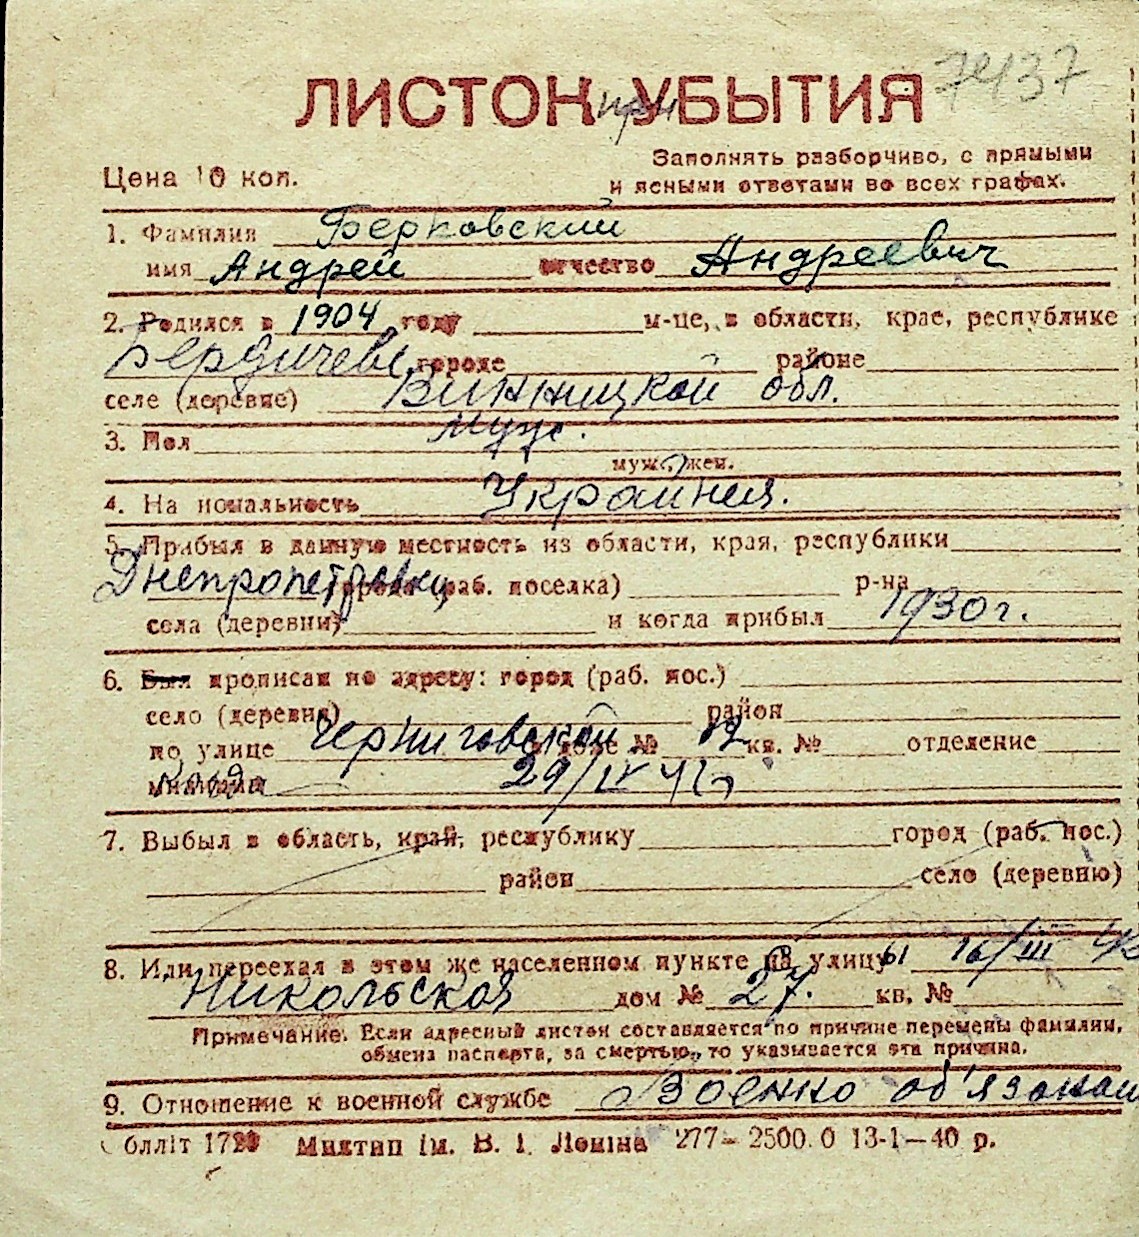 7437
ЛИСТОК УБЫТИЯ
при
Цена 10 коп.
Заполнять разборчиво, с прямыми
и ясными ответами во всех графах.
1. Фамилия Берковский
имя Андрей отчество Андреевич
2. Родился в 1904 году м-це, в области, крае, республике
Бердичеве городе районе
селе (деревне) Винницкой обл.
3. Пол муж.
муж., жен.
4. Национальность Украйнец.
5. Прибыл в данную местность из области, края, республики
Днепропетровки города (раб. поселка) р-на
села (деревни) и когда прибыл 1930 г.
6. Был прописан по адресу: город (раб. пос.)
село (деревня) район
по улице Черниговской в доме № 12 кв. № отделение
милиции 29/IV 42
7. Выбыл в область, край, республику город (раб. пос.)
район село (деревню)
8. Или переехал в этом же населенном пункте на улицу 16/III 42
Никольская дом № 27. кв. №
Примечание. Если адресный листок составляется по причине перемены фамилии,
обмена паспорта, за смертью, то указывается эта причина.
9. Отношение к военной службе Военно об'язаный
Обліт 1720 Миктип ім. В. І. Леніна 277—2500.0 13-1—40 р.